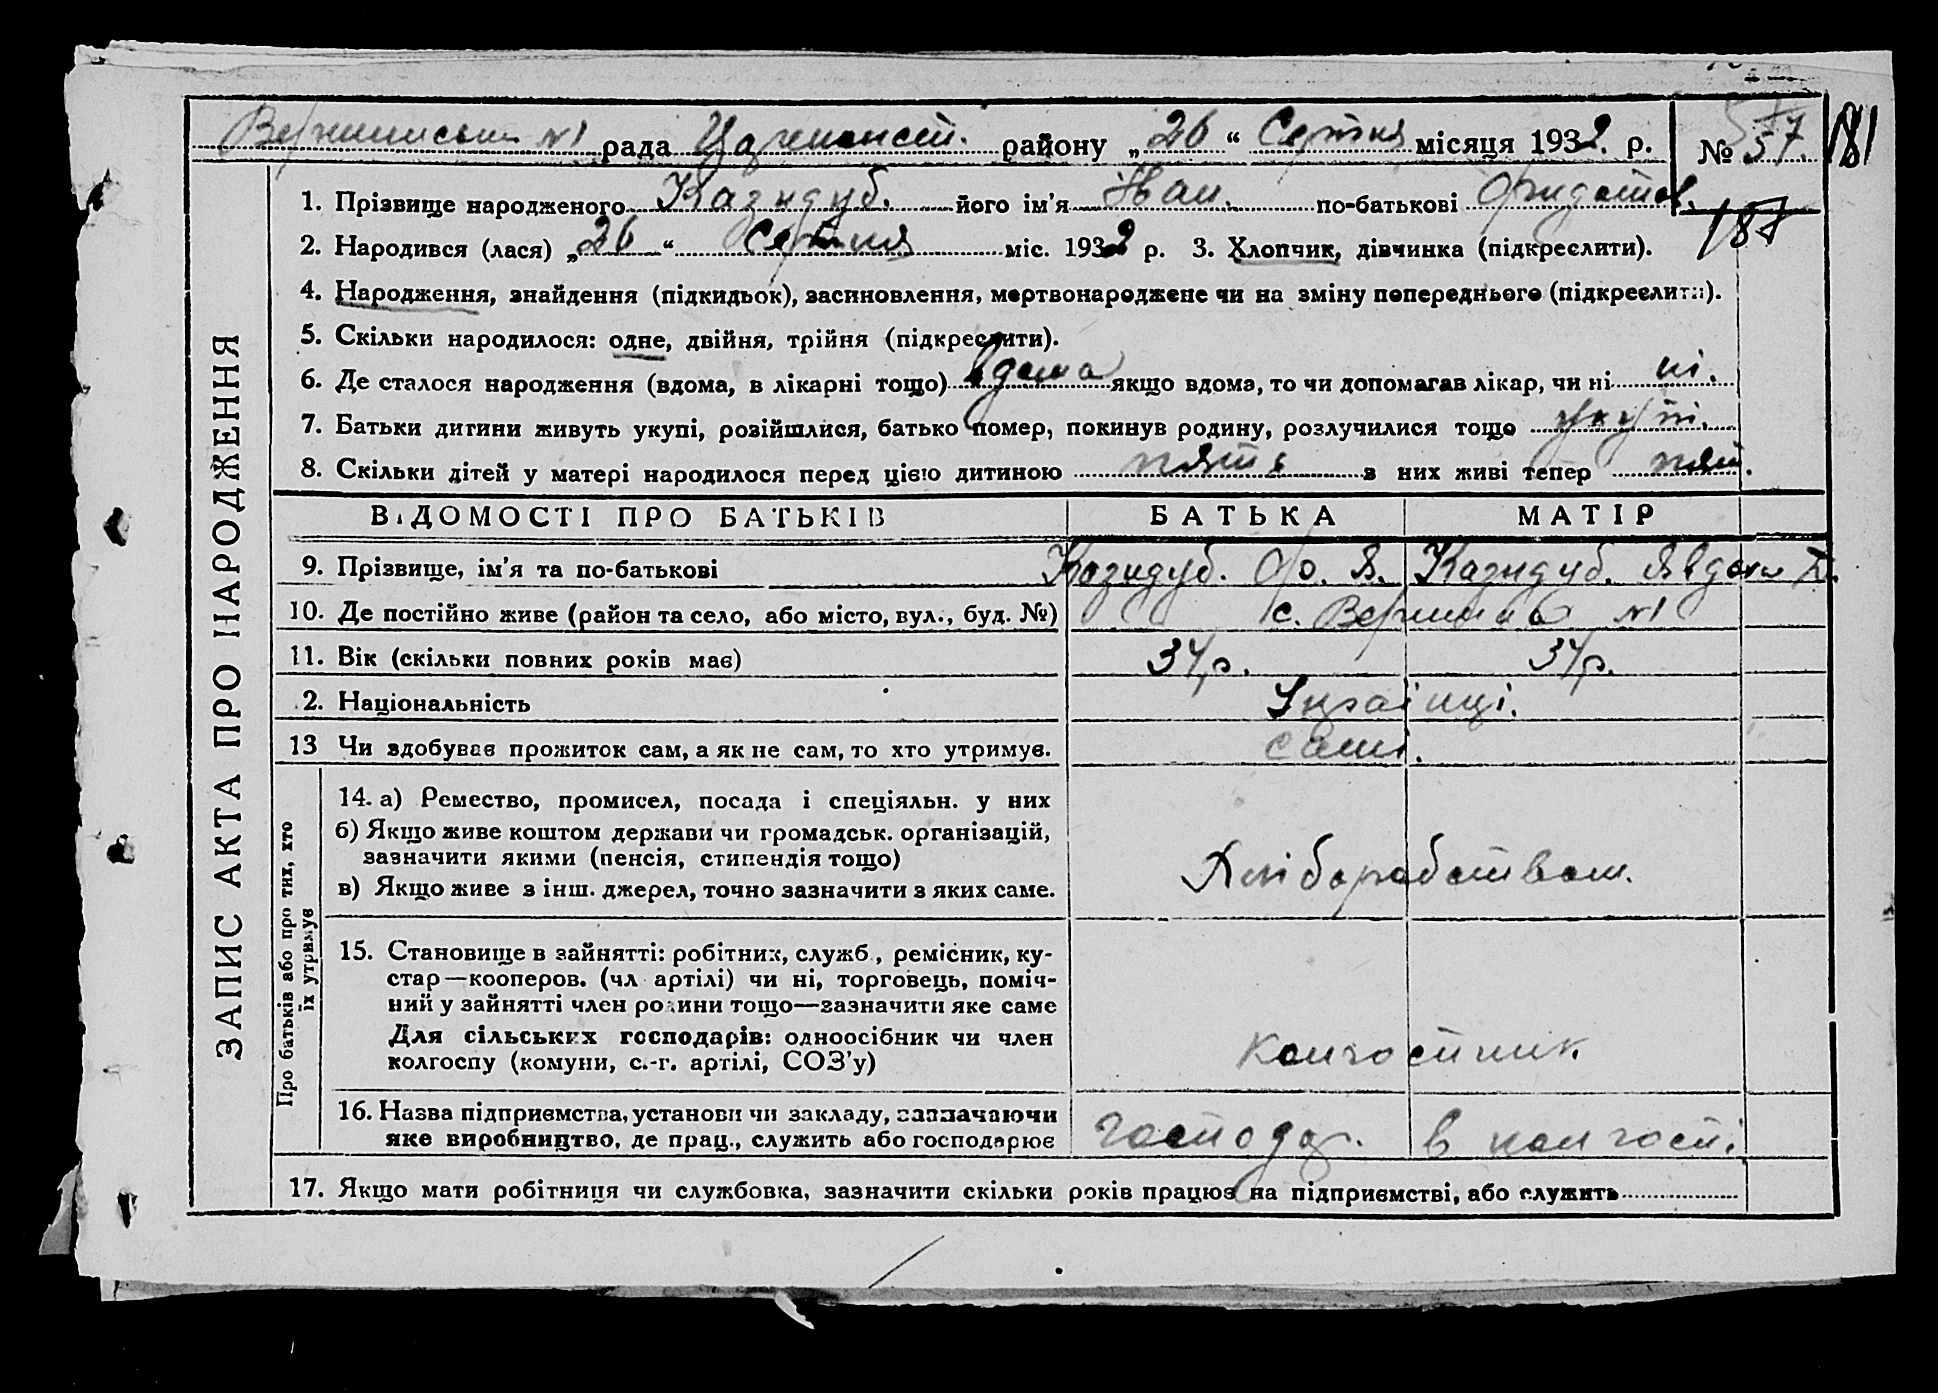 Вершинська №1 рада Царичанськ. району „26“ Серпня місяця 1932. р. № 57. 181
1. Прізвище народженого Казидуб. його ім'я Іван. по-батькові Федотов. 187
2. Народився (лася) „26“ Серпня міс. 1932 р. 3. Хлопчик, дівчинка (підкреслити).
4. Народження, знайдення (підкидьок), засиновлення, мертвонароджене чи на зміну попереднього (підкреслити).
5. Скільки народилося: одне, двійня, трійня (підкреслити).
6. Де сталося народження (вдома, в лікарні тощо) вдома якщо вдома, то чи допомагав лікар, чи ні ні.
7. Батьки дитини живуть укупі, розійшлися, батько помер, покинув родину, розлучилися тощо укупі.
8. Скільки дітей у матері народилося перед цією дитиною пять з них живі тепер пять.
ВІДОМОСТІ ПРО БАТЬКІВ БАТЬКА МАТІР
9. Прізвище, ім'я та по-батькові Казидуб. Ф. Я. Казидуб. Явдоки
10. Де постійно живе (район та село, або місто, вул., буд. №) с. Вершина №1
11. Вік (скільки повних років має) 34 р. 34 р.
2. Національність Українці.
13 Чи здобуває прожиток сам, а як не сам, то хто утримує. сами.
14. а) Ремество, промисел, посада і спеціяльн. у них
б) Якщо живе коштом держави чи громадськ. організацій,
зазначити якими (пенсія, стипендія тощо)
в) Якщо живе з інш. джерел, точно зазначити з яких саме.
Хліборобством.
15. Становище в зайнятті: робітник, служб., ремісник, ку-
стар—кооперов. (чл артілі) чи ні, торговець, поміч-
ний у зайнятті член родини тощо—зазначити яке саме
Для сільських господарів: одноосібник чи член
колгоспу (комуни, с.-г. артілі, СОЗ'у)
Колгоспник
16. Назва підприємства, установи чи закладу, зазначаючи
яке виробництво, де прац., служить або господарює
господар. в колгоспі
17. Якщо мати робітниця чи службовка, зазначити скільки років працює на підприємстві, або служить
ЗАПИС АКТА ПРО НАРОДЖЕННЯ
Про батьків або про тих, хто
їх утримує